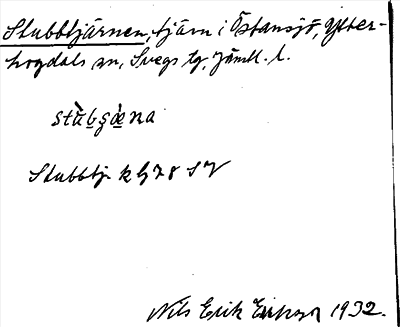 Stubbtjärnen, tjärn i Östansjö, Ytter-
hogdals sn, Svegs tg, Jämtl. l.
Stubbtj. k G 78 SV
Nils Erik Erikson 1932.